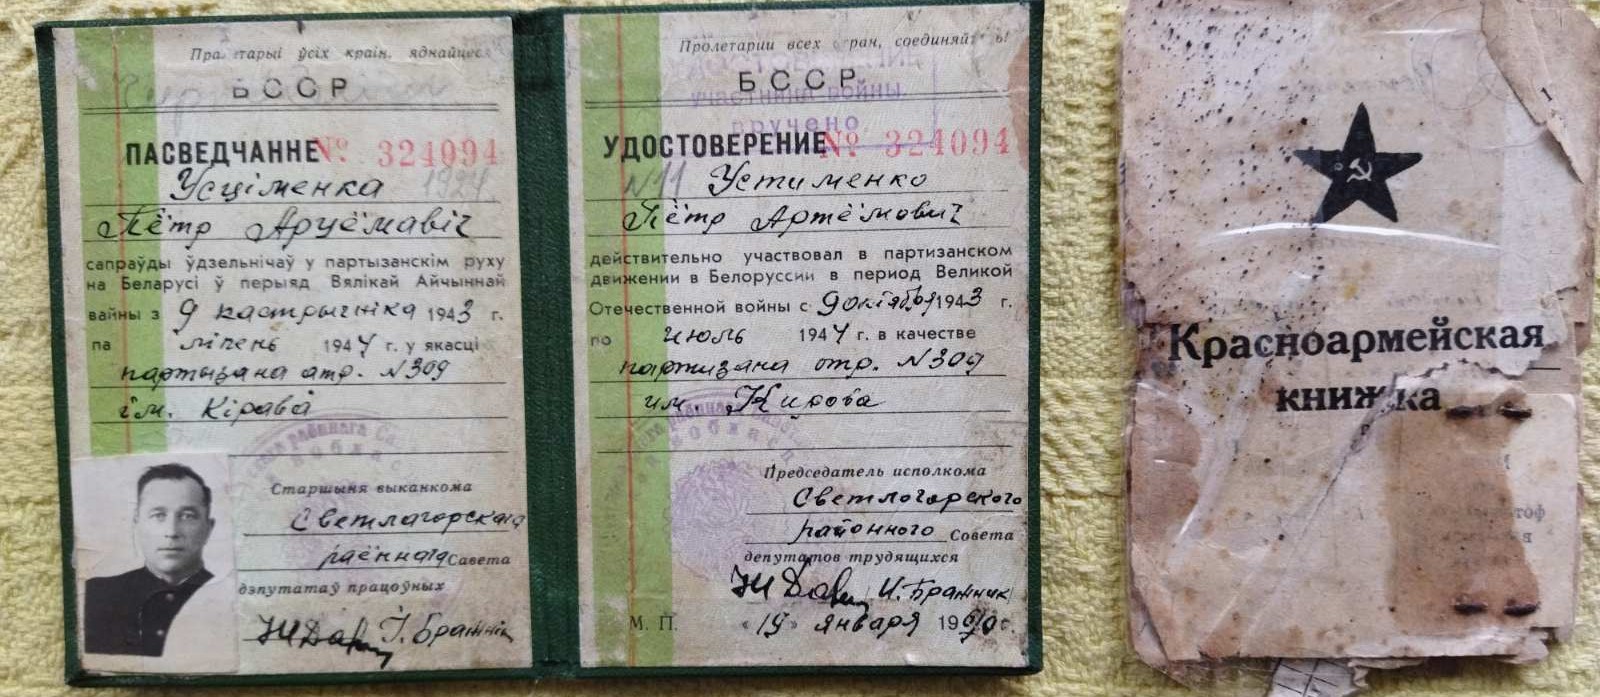 Пралетарыі ўсіх краін, яднайцеся
БССР
ПАСВЕДЧАННЕ № 324094
Усціменка 1924
Пётр Арцёмавіч
сапраўды ўдзельнічаў у партызанскім руху
на Беларусі ў перыяд Вялікай Айчыннай
вайны з 9 кастрычніка 1943 г.
па ліпень 1944 г. у якасці
партызана атр. N 309
ім. Кірава
Старшыня выканкома
Светлагорскага
раённага Савета
дэпутатаў працоўных
І. Бражнік
Пролетарии всех стран, соединяйтесь!
БССР
участника войны
вручено
УДОСТОВЕРЕНИЕ № 324094
N 11 Устименко
Пётр Артёмович
действительно участвовал в партизанском
движении в Белоруссии в период Великой
Отечественной войны с 9 октября 1943 г.
по июль 1944 г. в качестве
партизана отр. N 309
им. Кирова
Председатель исполкома
Светлогорского
районного Совета
депутатов трудящихся
И. Бражник
М. П. «19» января 19 г.
1
Красноармейская
книжка